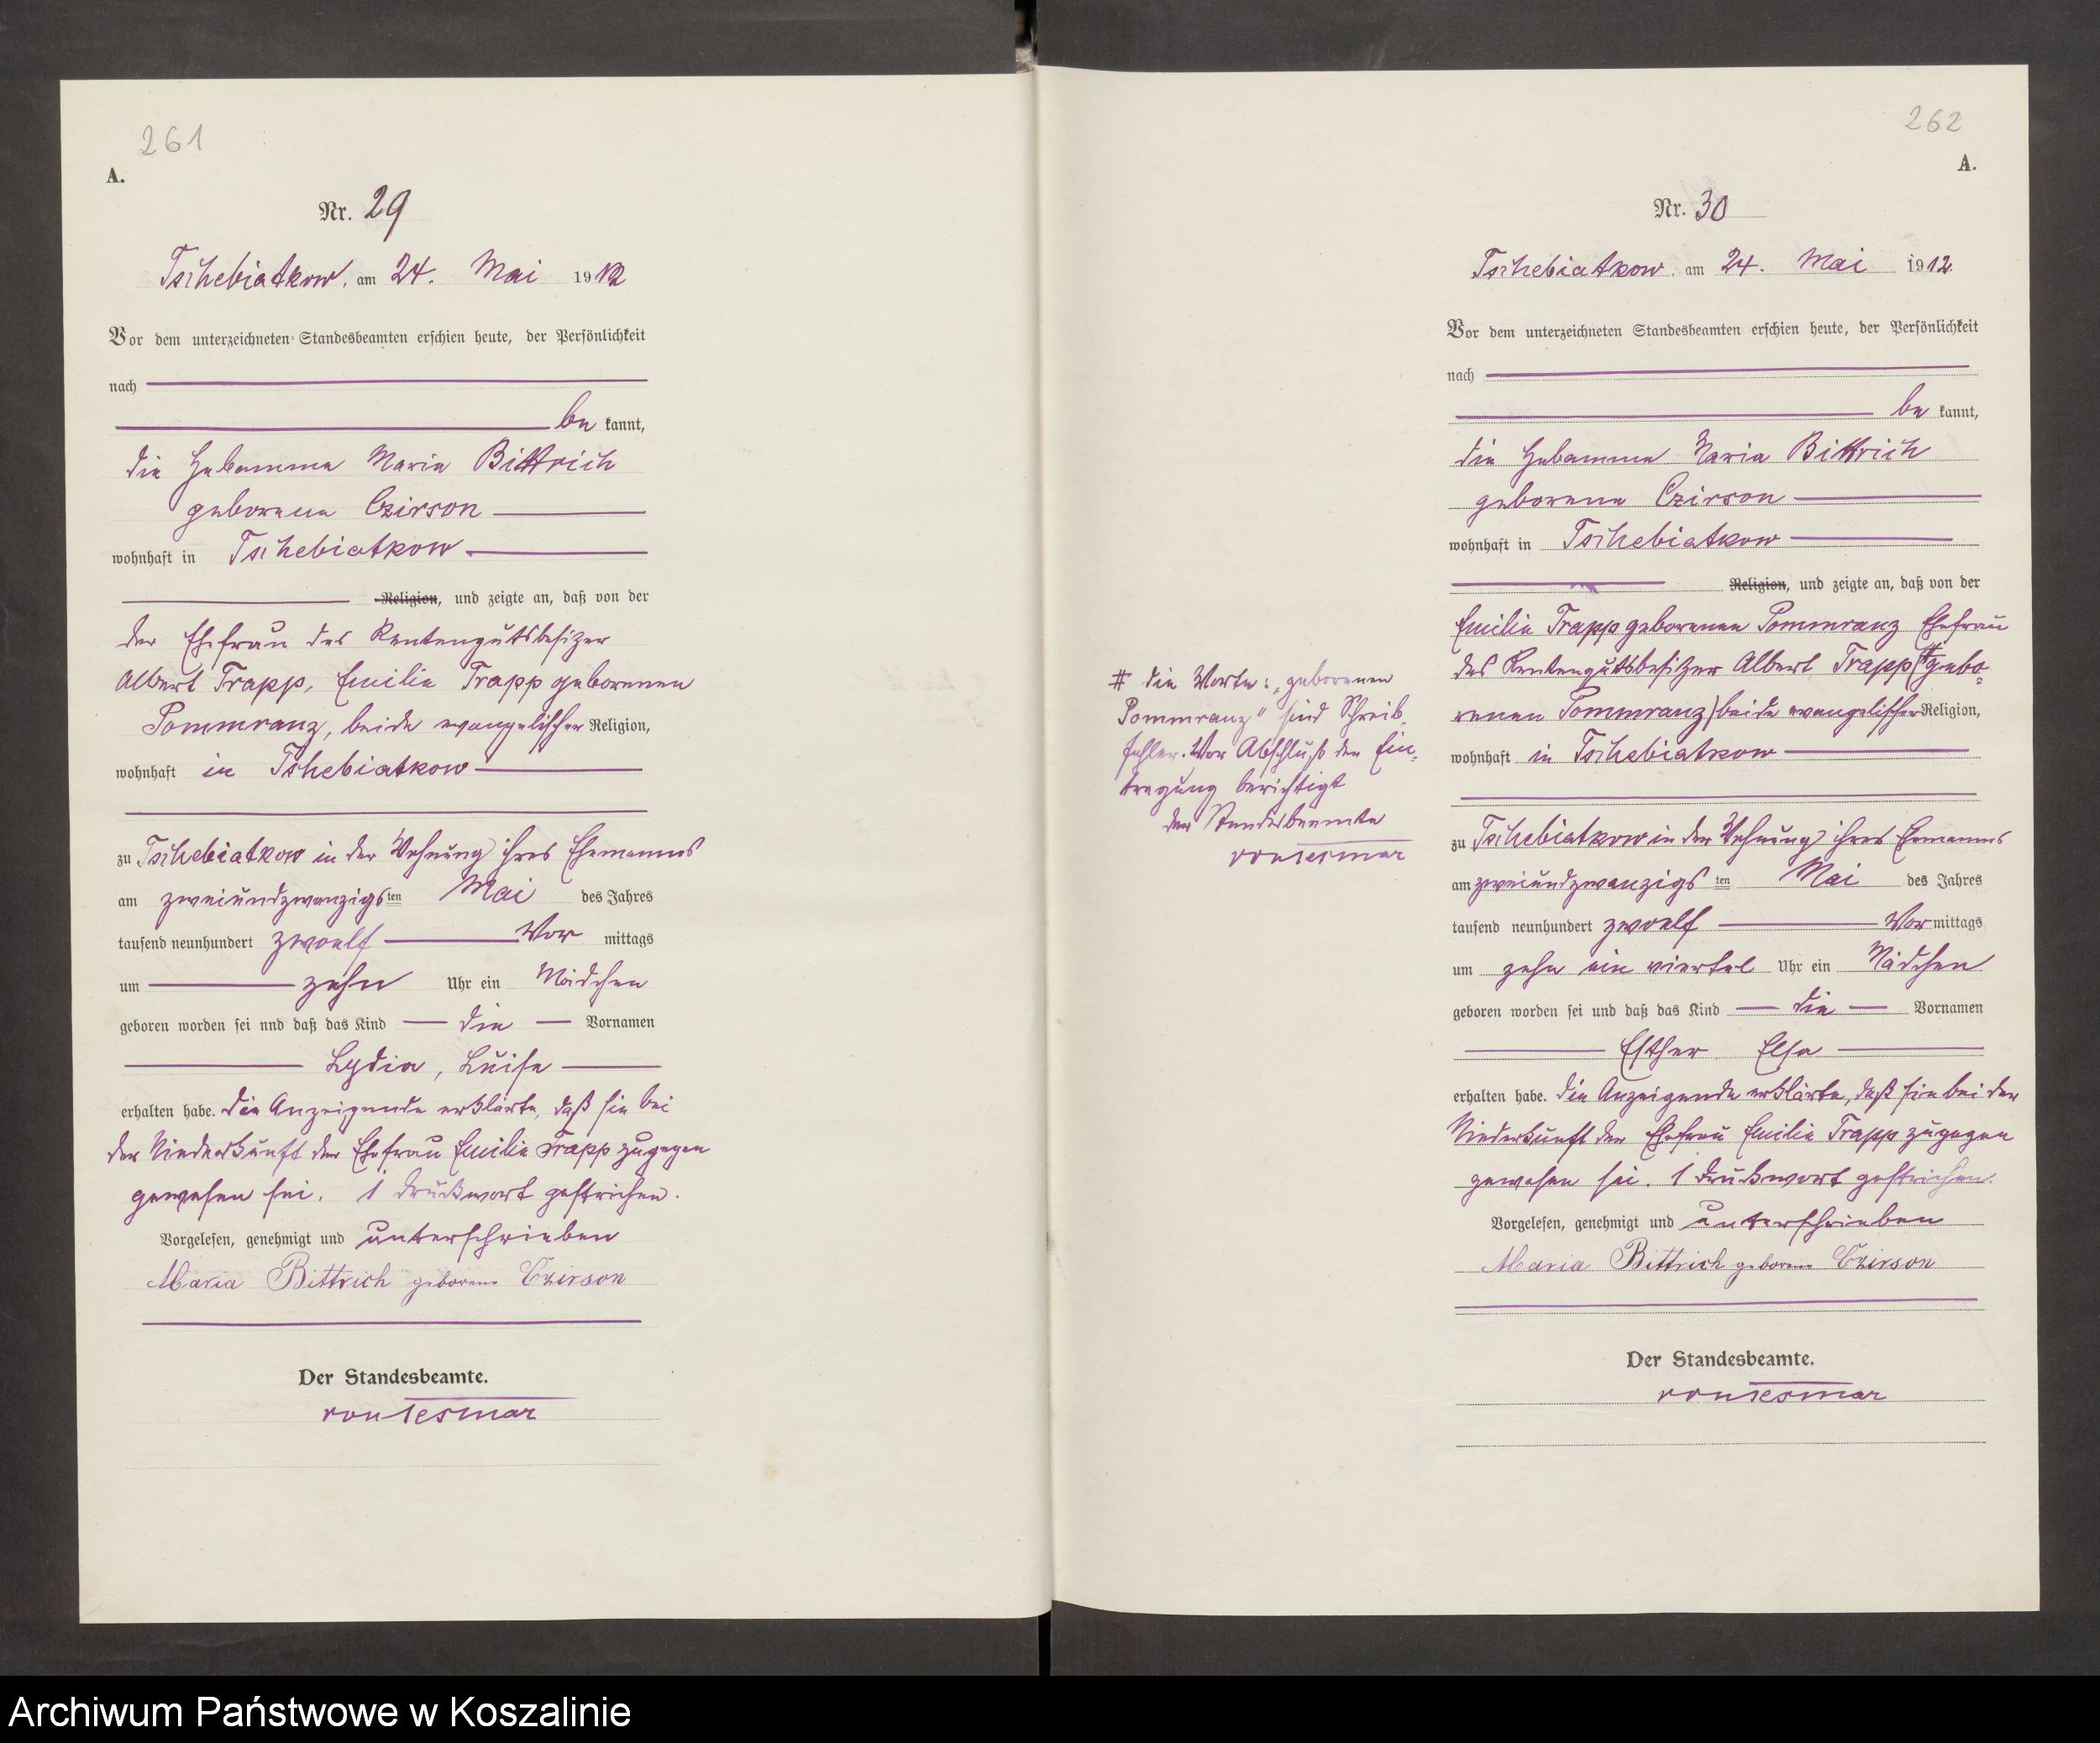 261
A.
Nr. 29
Tschebiatkow, am 24. Mai 1912
Vor dem unterzeichneten Standesbeamten erschien heute, der Persönlichkeit
nach
be kannt,
die Hebamme Maria Bittrich
geborene Czirson
wohnhaft in Tschebiatkow
Religion, und zeigte an, daß von der
der Ehefrau des Rentengutsbesizer
Albert Trapp, Emilie Trapp geborenen
Pommranz, beide evangelischer Religion,
wohnhaft in Tshebiatkow
zu Tschebiatkow in der Wohnung ihres Ehemannes
am zweiundzwanzigsten Mai des Jahres
tausend neunhundert zwoelf Vor mittags
um zehn Uhr ein Mädchen
geboren worden sei nnd daß das Kind die Vornamen
Lydia, Luise
erhalten habe. Die Anzeigende erklärte, daß sie bei
der Niederkunft der Ehefrau Emilie Trapp zugegen
gewesen sei. 1 Druckwort gestrichen.
Vorgelesen, genehmigt und unterschrieben
Maria Bittrich geborene Czirson
Der Standesbeamte.
von Tesmar
262
A.
Nr. 30
Tschebiatkow, am 24. Mai 1912.
Vor dem unterzeichneten Standesbeamten erschien heute, der Persönlichkeit
nach
be kannt,
die Hebamme Maria Bittrich
geborene Czirson
wohnhaft in Tschebiatkow
Religion, und zeigte an, daß von der
Emilie Trapp geborenen Pommranz Ehefrau
des Rentengutsbesitzer Albert Trapp (# gebo-
renen Pommranz) beide evangelischer Religion,
wohnhaft in Tschebiatkow
zu Tschebiatkow in der Wohnung ihres Ehemannes
am zweiundzwanzigsten Mai des Jahres
tausend neunhundert zwoelf Vor mittags
um zehn ein viertel Uhr ein Mädchen
geboren worden sei und daß das Kind die Vornamen
Esther Elsa
erhalten habe. Die Anzeigende erklärte, daß sie bei der
Niederkunft der Ehefrau Emilie Trapp zugegen
gewesen sei. 1 Druckwort gestrichen.
Vorgelesen, genehmigt und unterschrieben
Maria Bittrich geborene Czirson
Der Standesbeamte.
von Tesmar
# die Worte: „geborenen
Pommranz" sind Schreib-
fehler. Vor Abschluß der Ein-
tragung berichtigt
der Standesbeamte
von Tesmar
Archiwum Państwowe w Koszalinie